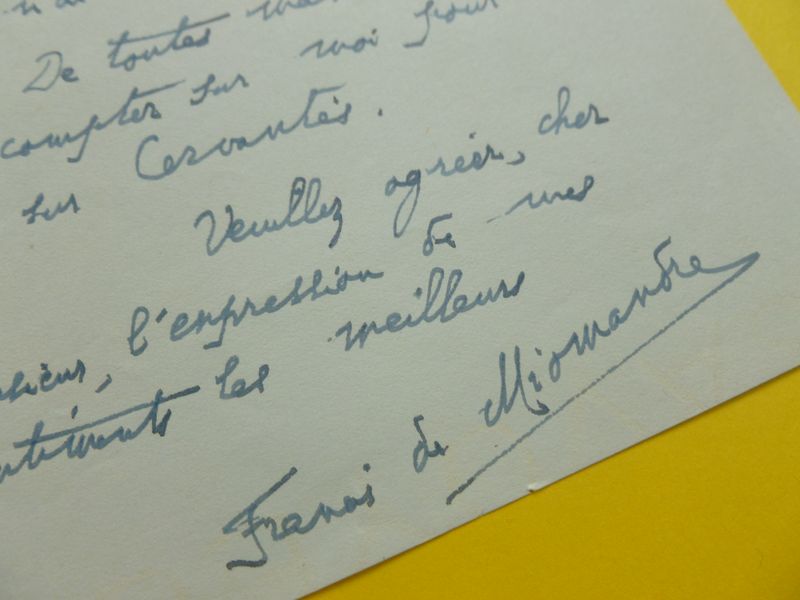 De toutes
compter sur moi pour
sur Cervantès.
Veuillez agréer, cher
l'expression de mes
les meilleurs
Francis de Miomandre